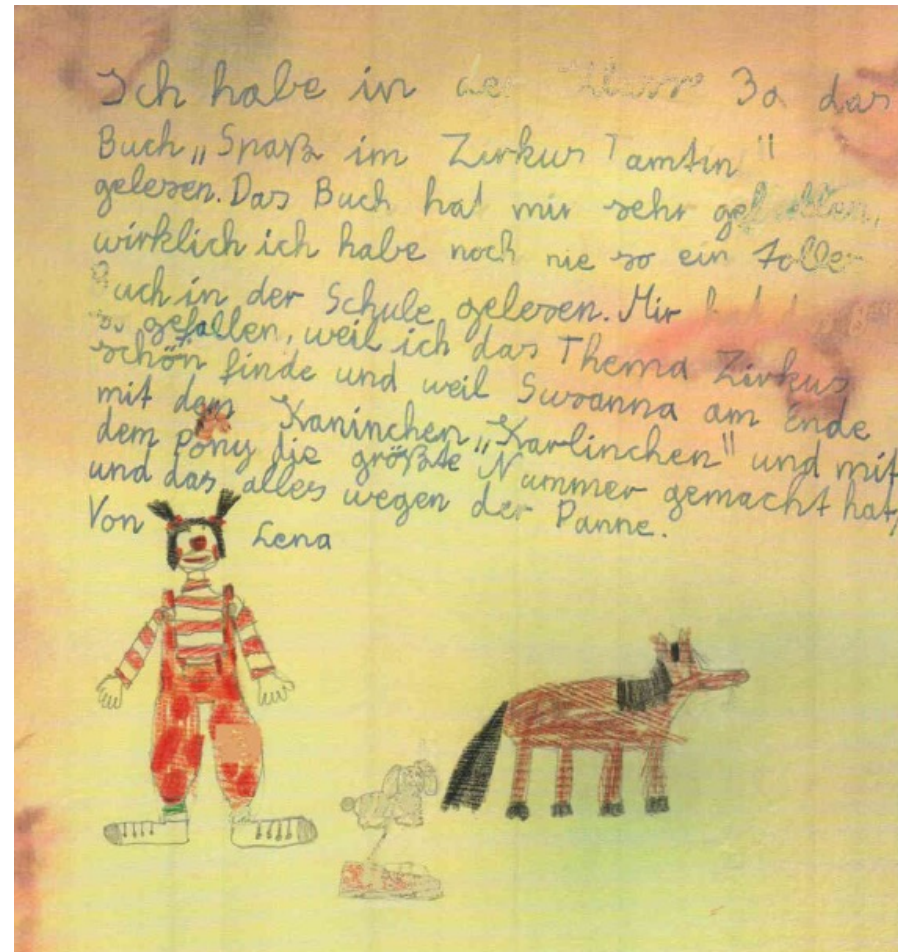 Ich habe in der Klasse 3a das
Buch „Spaß im Zirkus Tamtin"
gelesen. Das Buch hat mir sehr gefallen,
wirklich ich habe noch nie so ein tolles
Buch in der Schule gelesen. Mir hat
so gefallen, weil ich das Thema Zirkus
schön finde und weil Susanna am Ende
mit dem Kaninchen „Karlinchen" und mit
dem Pony die größte Nummer gemacht hat,
und das alles wegen der Panne.
Von Lena